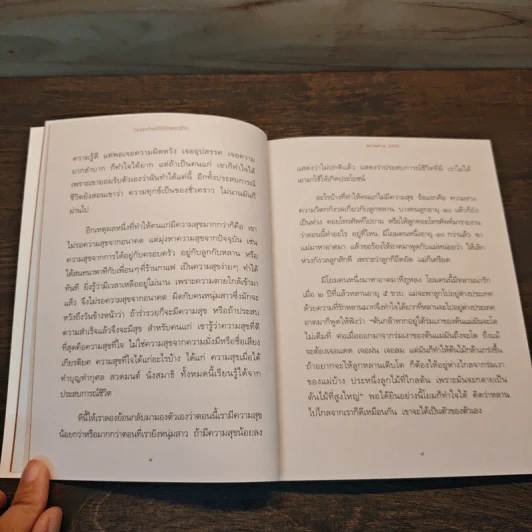 ความรู้ดี แต่พอเจอความผิดหวัง เจออุปสรรค เจอความ
ยากลำบาก ก็ทำใจได้ยาก แต่ถ้าเป็นคนแก่ เขาก็ทำใจได้
เพราะเขายอมรับตัวเองว่าผ่านทำได้แค่นี้ อีกทั้งประสบการณ์
ชีวิตยังสอนเขาว่า ความทุกข์เป็นของชั่วคราว ไม่นานมันก็
ผ่านไป
อีกเหตุผลหนึ่งที่ทำให้คนแก่มีความสุขมากกว่าก็คือ เขา
ไม่รอความสุขจากอนาคต แต่มุ่งหาความสุขจากปัจจุบัน เช่น
ความสุขจากการได้อยู่กับครอบครัว อยู่กับลูกหลาน หรือ
ได้สนทนาพาทีกับเพื่อนๆ ที่ร้านกาแฟ เป็นความสุขง่ายๆ ทำได้
ทันที ยิ่งรู้ว่ามีเวลาเหลืออยู่ไม่นาน เพราะความตายใกล้เข้ามา
แล้ว จึงไม่รอความสุขจากอนาคต ผิดกับคนหนุ่มสาวซึ่งมักจะ
หวังถึงวันข้างหน้าว่า ถ้าร่ำรวยก็จะมีความสุข หรือถ้าประสบ
ความสำเร็จแล้วจึงจะมีสุข สำหรับคนแก่ เขารู้ว่าความสุขที่ดี
ที่สุดคือความสุขที่ใจ ไม่ใช่ความสุขจากความมั่งมีหรือชื่อเสียง
เกียรติยศ ความสุขที่ใจได้แก่อะไรบ้าง ได้แก่ ความสุขเมื่อได้
ทำบุญทำกุศล สวดมนต์ นั่งสมาธิ ทั้งหมดนี้เรียนรู้ได้จาก
ประสบการณ์ชีวิต
ทีนี้ให้เราลองย้อนกลับมามองตัวเองว่าตอนนี้เรามีความสุข
น้อยกว่าหรือมากกว่าตอนที่เรายังหนุ่มสาว ถ้ามีความสุขน้อยลง
๘
แสดงว่าไม่ปกติแล้ว แสดงว่าประสบการณ์ชีวิตที่มี เราไม่ได้
เอามาใช้ให้เกิดประโยชน์
อะไรบ้างที่ทำให้คนแก่ไม่มีความสุข ข้อแรกคือ ความห่วง
ความวิตกกังวลเกี่ยวกับลูกหลาน บางคนลูกอายุ ๔๐ แล้วก็ยัง
เป็นห่วง คอยโทรศัพท์ไปถาม หรือให้ลูกคอยโทรศัพท์มารายงาน
ว่าตอนนี้ทำอะไร อยู่ที่ไหน
แม่มาหาอาตมา แล้วขอร้องให้อาตมาพูดกับแม่หน่อยว่า ให้เลิก
ห่วงกังวลลูกสักที เพราะว่าลูกก็อึดอัด แม่ก็เครียด
มีโยมคนหนึ่งมาหาอาตมาที่ภูหลง โยมคนนี้มีหลานน่ารัก
เมื่อ ๒ ปีที่แล้วหลานอายุ ๕ ขวบ แม่จะพาลูกไปอยู่ต่างประเทศ
ด้วยความที่รักหลานมากจึงทำใจได้ยากที่หลานจะไปอยู่ต่างประเทศ
อาตมาก็พูดให้ฟังว่า “ต้นกล้าหากอยู่ใต้ร่มเงาของต้นแม่มันจะโต
ไม่เต็มที่ ต่อเมื่อออกมาจากร่มเงาของต้นแม่มันถึงจะโต ถึงแม้
จะต้องเจอแดด เจอฝน เจอลม แต่มันก็ทำให้ต้นไม้กล้าแกร่งขึ้น
ถ้าอยากจะให้ลูกหลานเติบโต ก็ต้องให้อยู่ห่างไกลจากร่มเงา
ของแม่บ้าง ประหนึ่งลูกไม้ที่ไกลต้น เพราะมันจะกลายเป็น
ต้นไม้ที่สูงใหญ่” พอได้ยินอย่างนี้โยมก็ทำใจได้ คิดว่าหลาน
ไปไกลจากเราก็ดีเหมือนกัน เขาจะได้เป็นตัวของตัวเอง
๙